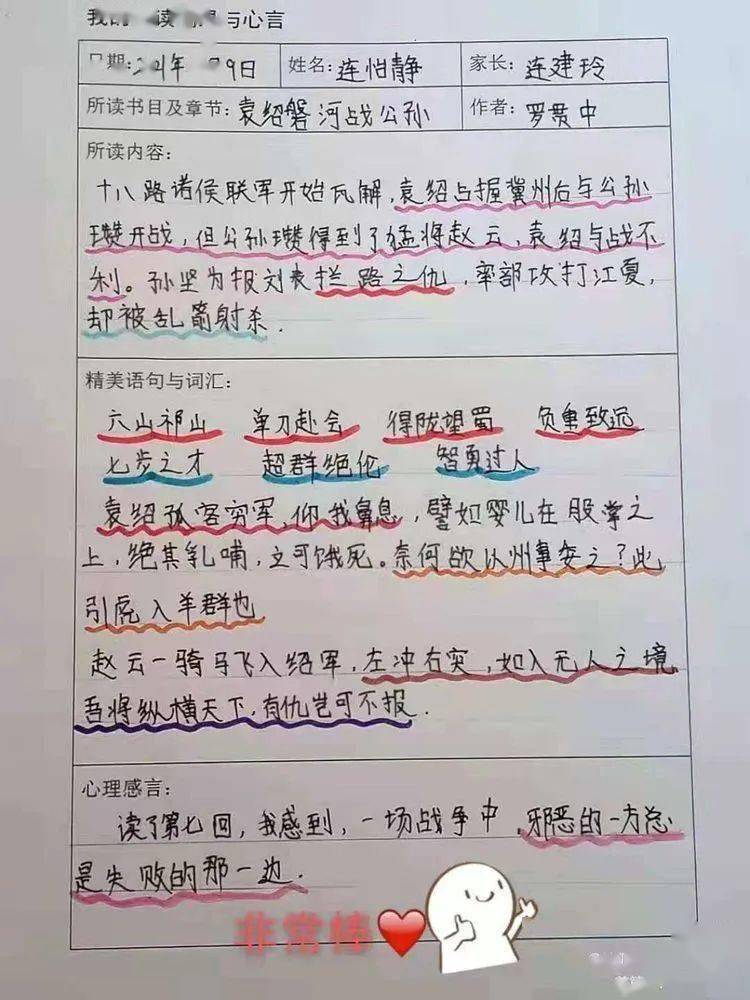 与心言
日期: 姓名: 连怡静 家长: 连建玲
所读书目及章节: 袁绍磐河战公孙 作者: 罗贯中
所读内容:
十八路诺侯联军开始瓦解,袁绍占握冀州后与公孙
瓒开战,但公孙瓒得到了猛将赵云,袁绍与战不
利。孙坚为报刘表拦路之仇,率部攻打江夏,
却被乱箭射杀.
精美语句与词汇:
六出祁山 单刀赴会 得陇望蜀 负重致远
七步之才 超群绝伦 智勇过人
袁绍孤客穷军,仰我鼻息,譬如婴儿在股掌之
上,绝其乳哺,立可饿死。奈何欲以州事委之?此
引虎入羊群也
赵云一骑马飞入绍军,左冲右突,如入无人之境
吾将纵横天下,有仇岂可不报.
心理感言:
读了第七回,我感到,一场战争中,邪恶的一方总
是失败的那一边.
非常棒